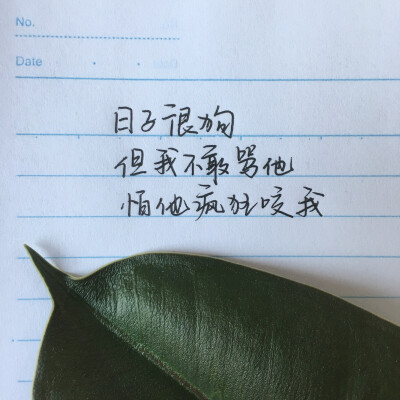 No.
Date
日子很狗
但我不敢骂他
怕他疯狂咬我